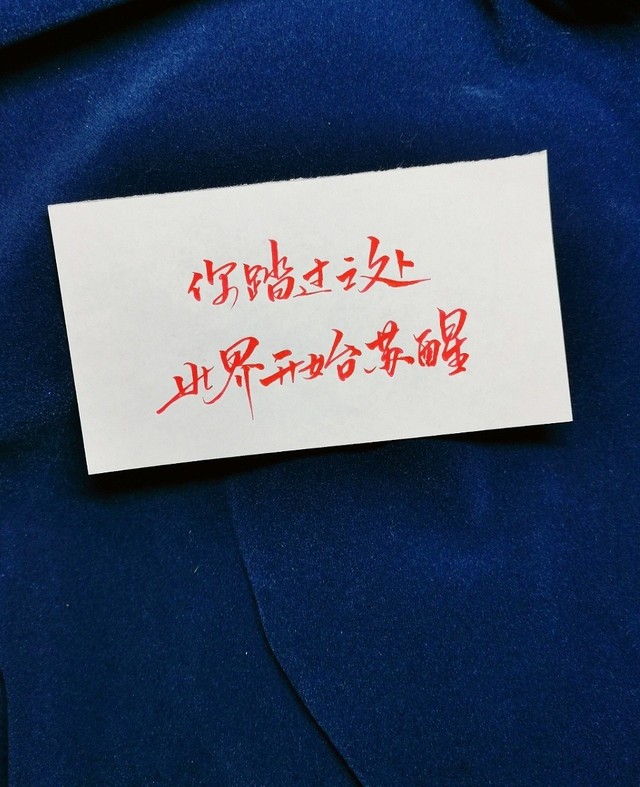 你踏过之处
世界开始苏醒